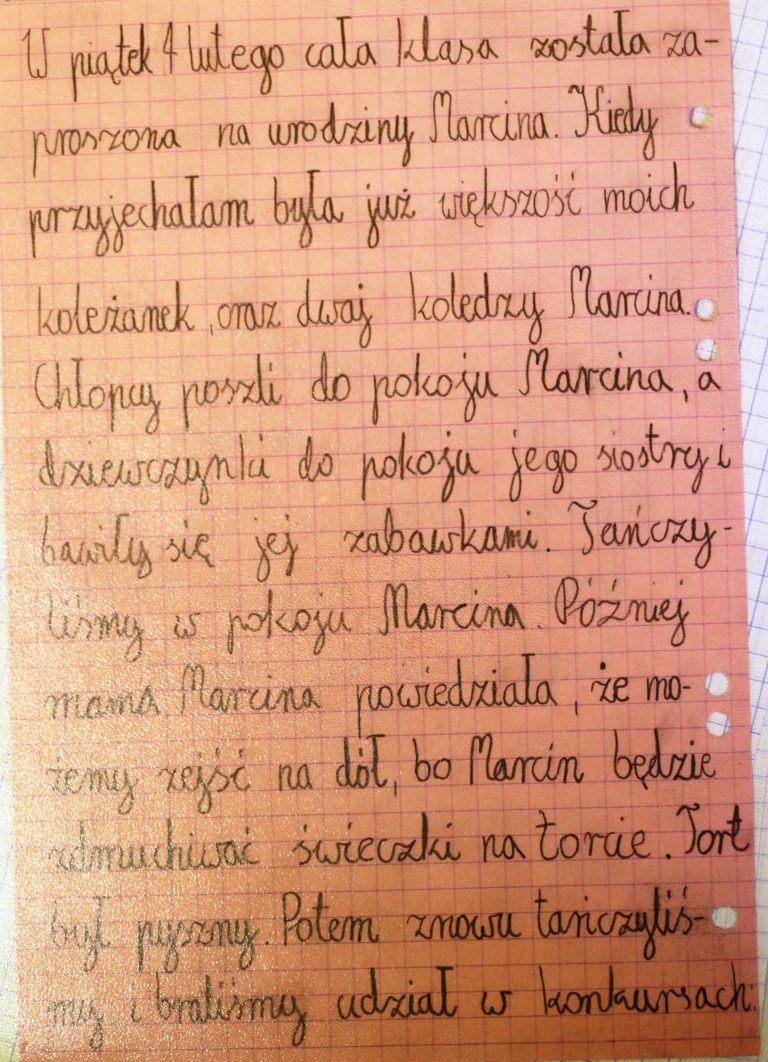 W piątek 4 lutego cała klasa została za-
proszona na urodziny Marcina. Kiedy
przyjechałam była już większość moich
koleżanek, oraz dwaj koledzy Marcina.
Chłopcy poszli do pokoju Marcina, a
dziewczynki do pokoju jego siostry i
bawiły się jej zabawkami. Tańczy-
liśmy w pokoju Marcina. Później
mama Marcina powiedziała, że mo-
żemy zejść na dół, bo Marcin będzie
zdmuchiwać świeczki na torcie. Tort
był pyszny. Potem znowu tańczyliś-
my i braliśmy udział w konkursach.